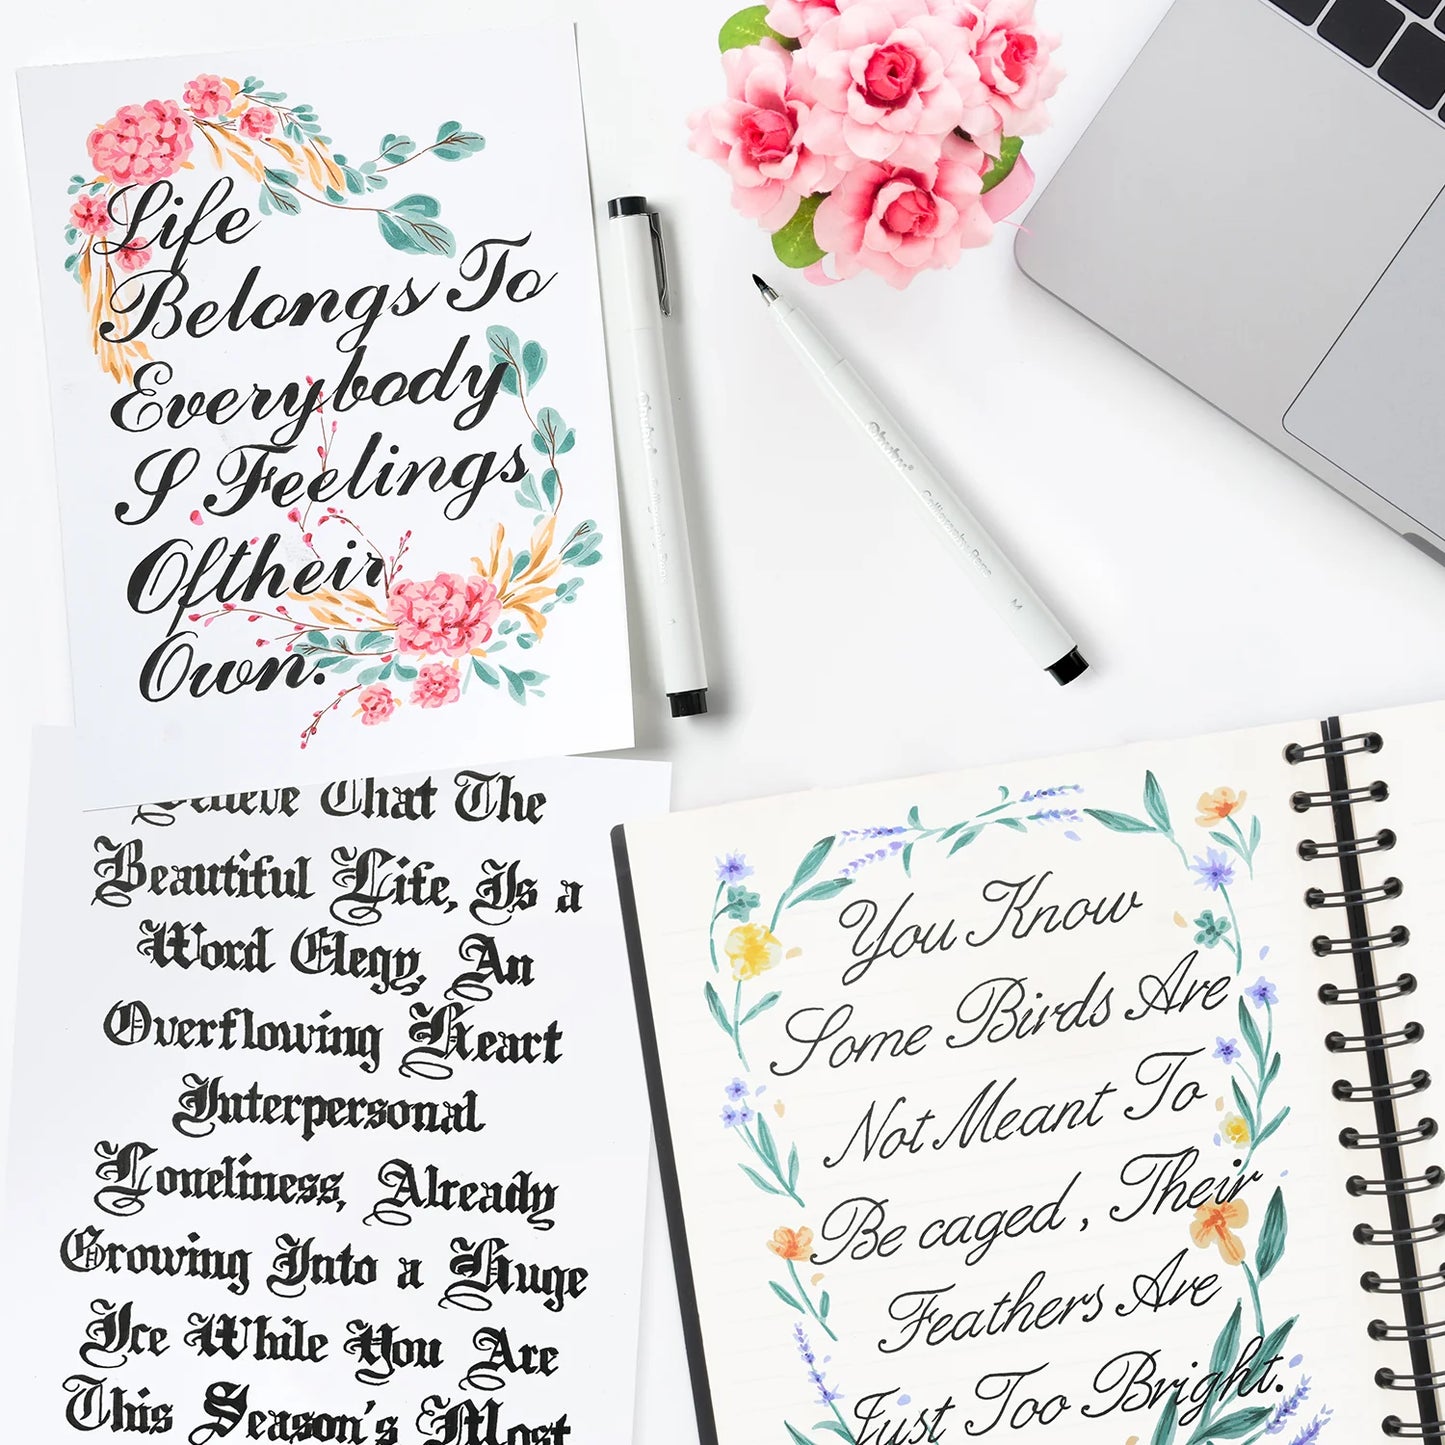 Life
Belongs To
Everybody
I Feelings
Oftheir
Own.
Ohuhu
Calligraphy Pens
1
Ohuhu
Calligraphy Pens
M
Believe That The
Beautiful Life, Is a
Word Elegy, An
Overflowing Heart
Interpersonal
Loneliness, Already
Growing Into a Huge
Ice While You Are
This Season's Most
You Know
Some Birds Are
Not Meant To
Be caged, Their
Feathers Are
Just Too Bright.